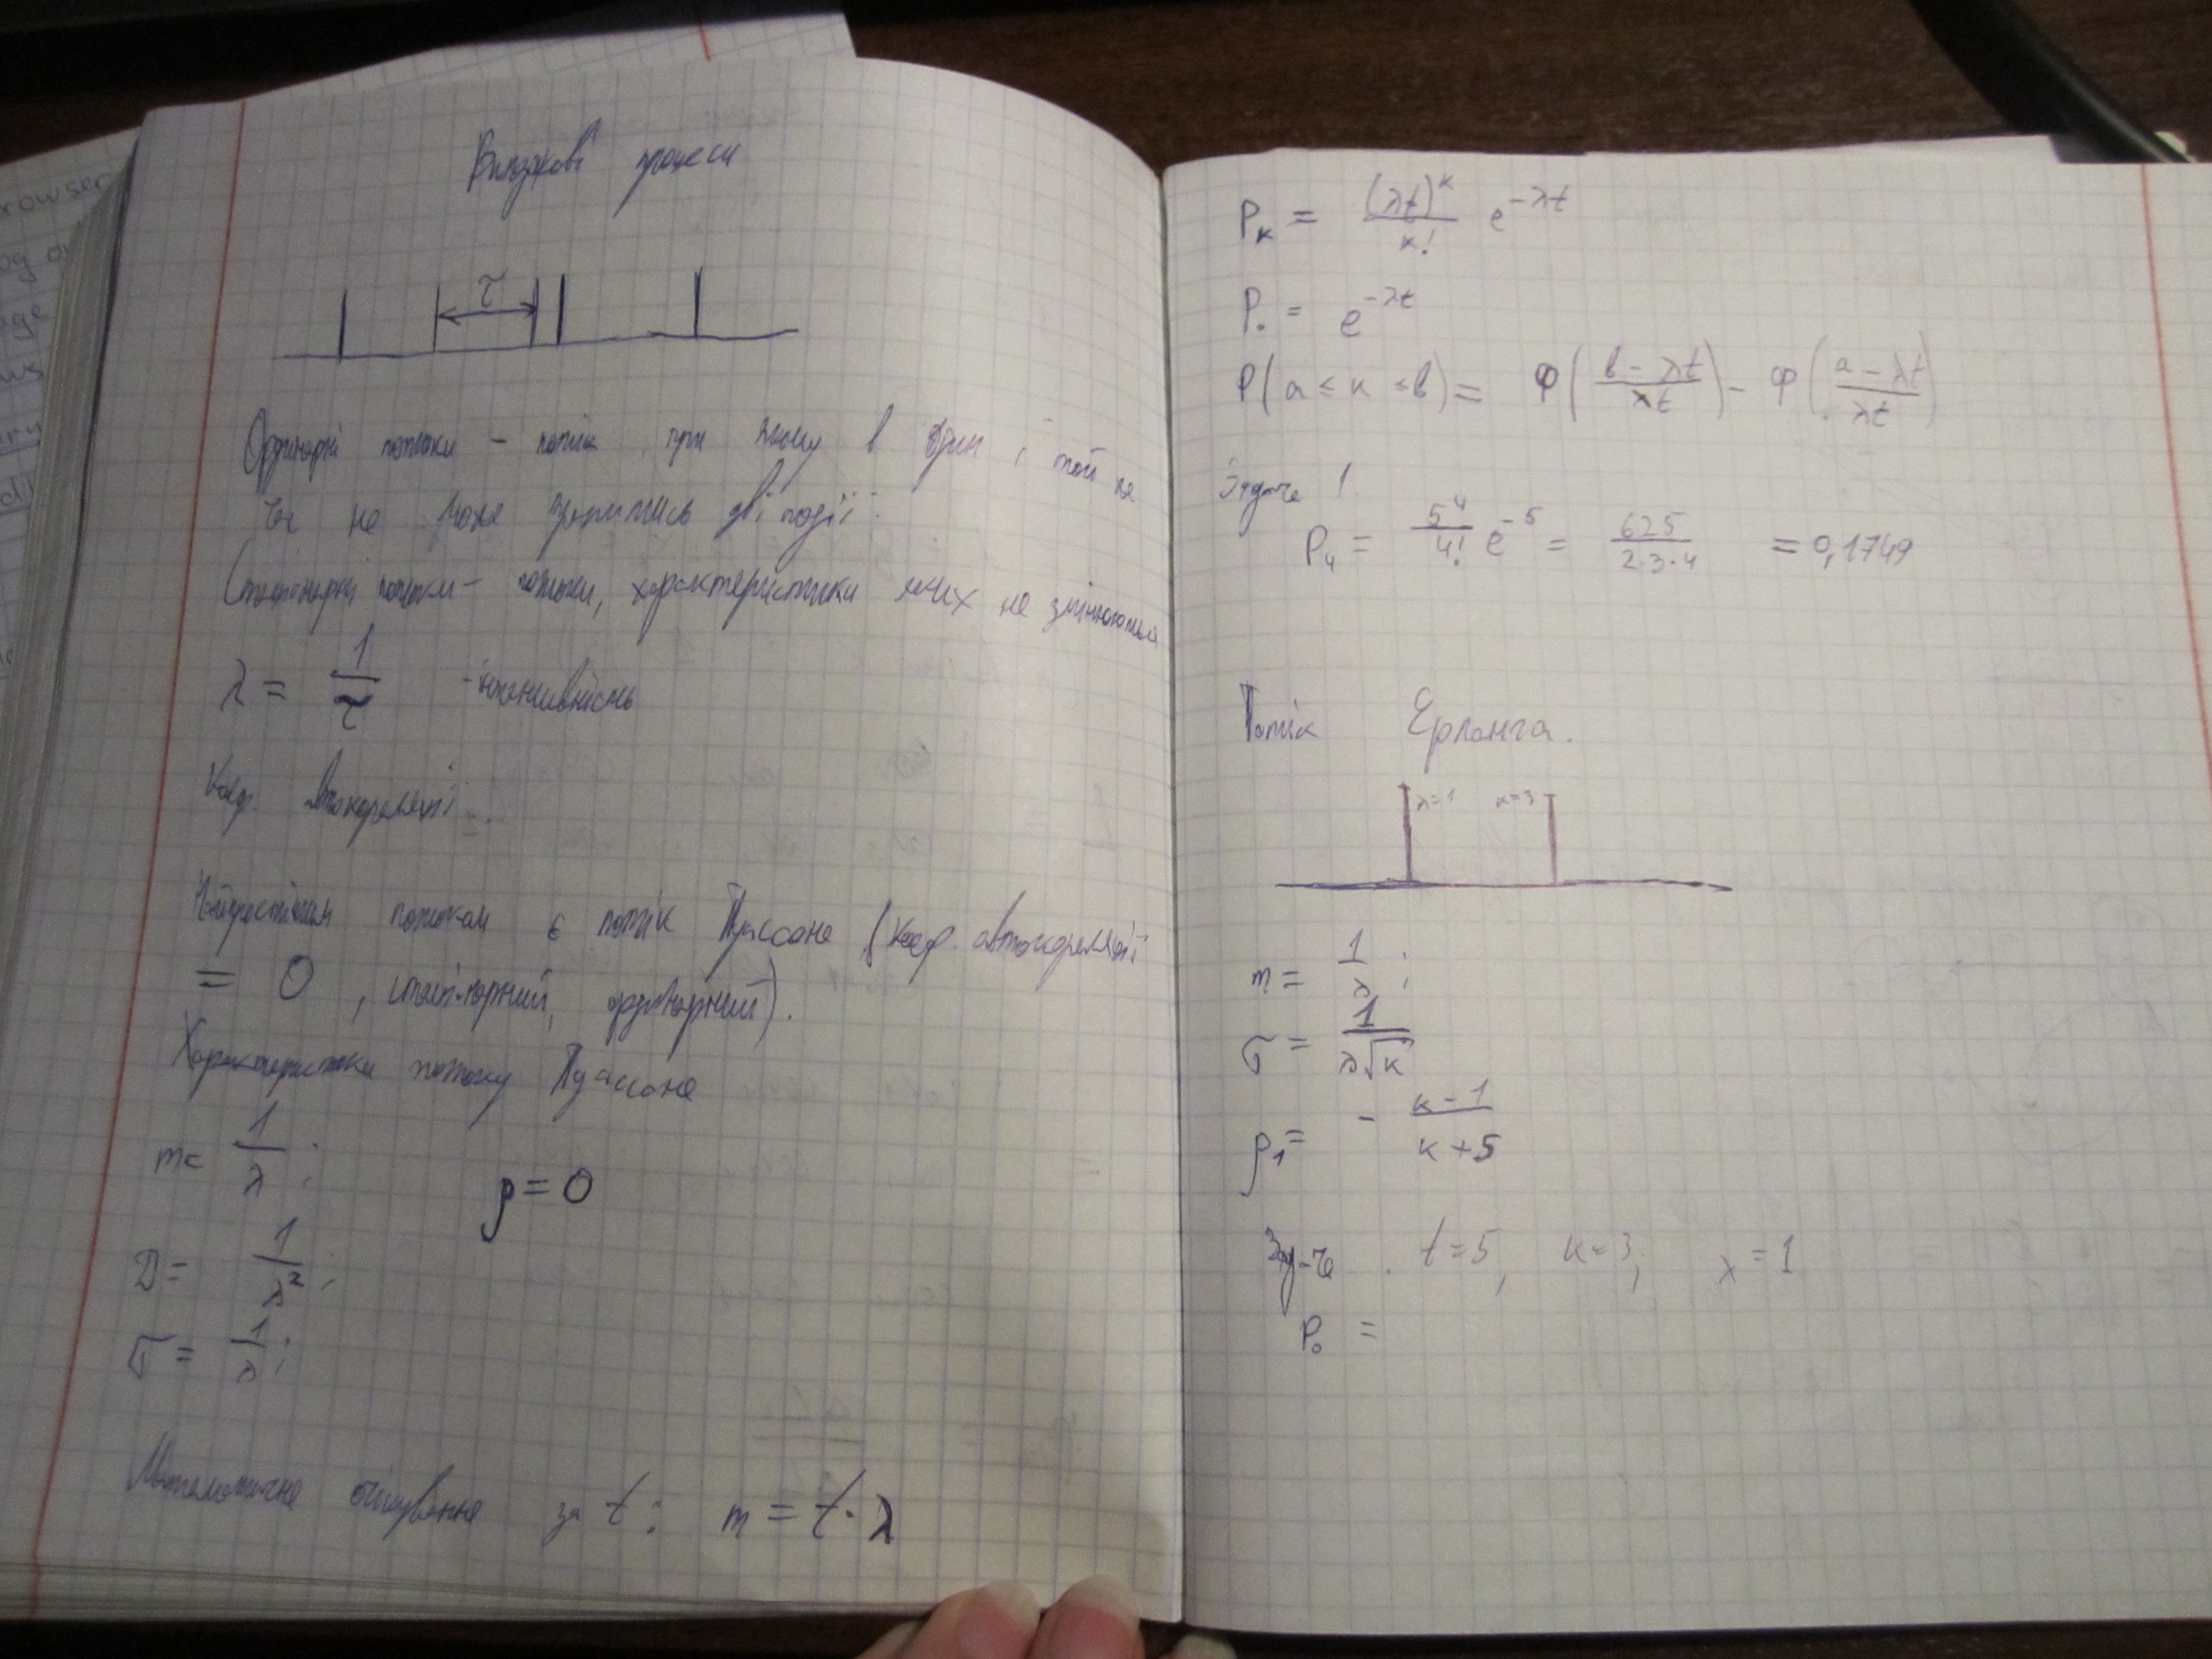 Випадкові процеси
τ
Ординарні потоки – потік, при якому в один і той же
час не може зʼявитись дві події.
Стаціонарні потоки – потоки, характеристики яких не змінюються
λ = 1/τ - інтенсивність
Коеф. автокореляції –
Найпростішим потоком є потік Пуассона (коеф. автокореляції
= 0, стаціонарний, ординарний).
Характеристики потоку Пуассона
m = 1/λ;
ρ = 0
D = 1/λ²;
σ = 1/λ;
Математичне очікування за t: m = t·λ
Pк = (λt)^к / к! e^-λt
P₀ = e^-λt
P(a ≤ к ≤ в) = Ф((в - λt)/λt) - Ф((a - λt)/λt)
Задача 1.
P₄ = 5⁴/4! e^-5 = 625/2·3·4 = 0,1749
Потік Ерланга.
λ=1 к=3
m = 1/λ;
σ = 1/λ√к
ρ₁ = - к-1/к+5
Зад-ча. t=5, к=3, λ=1
P₀ =
rowser